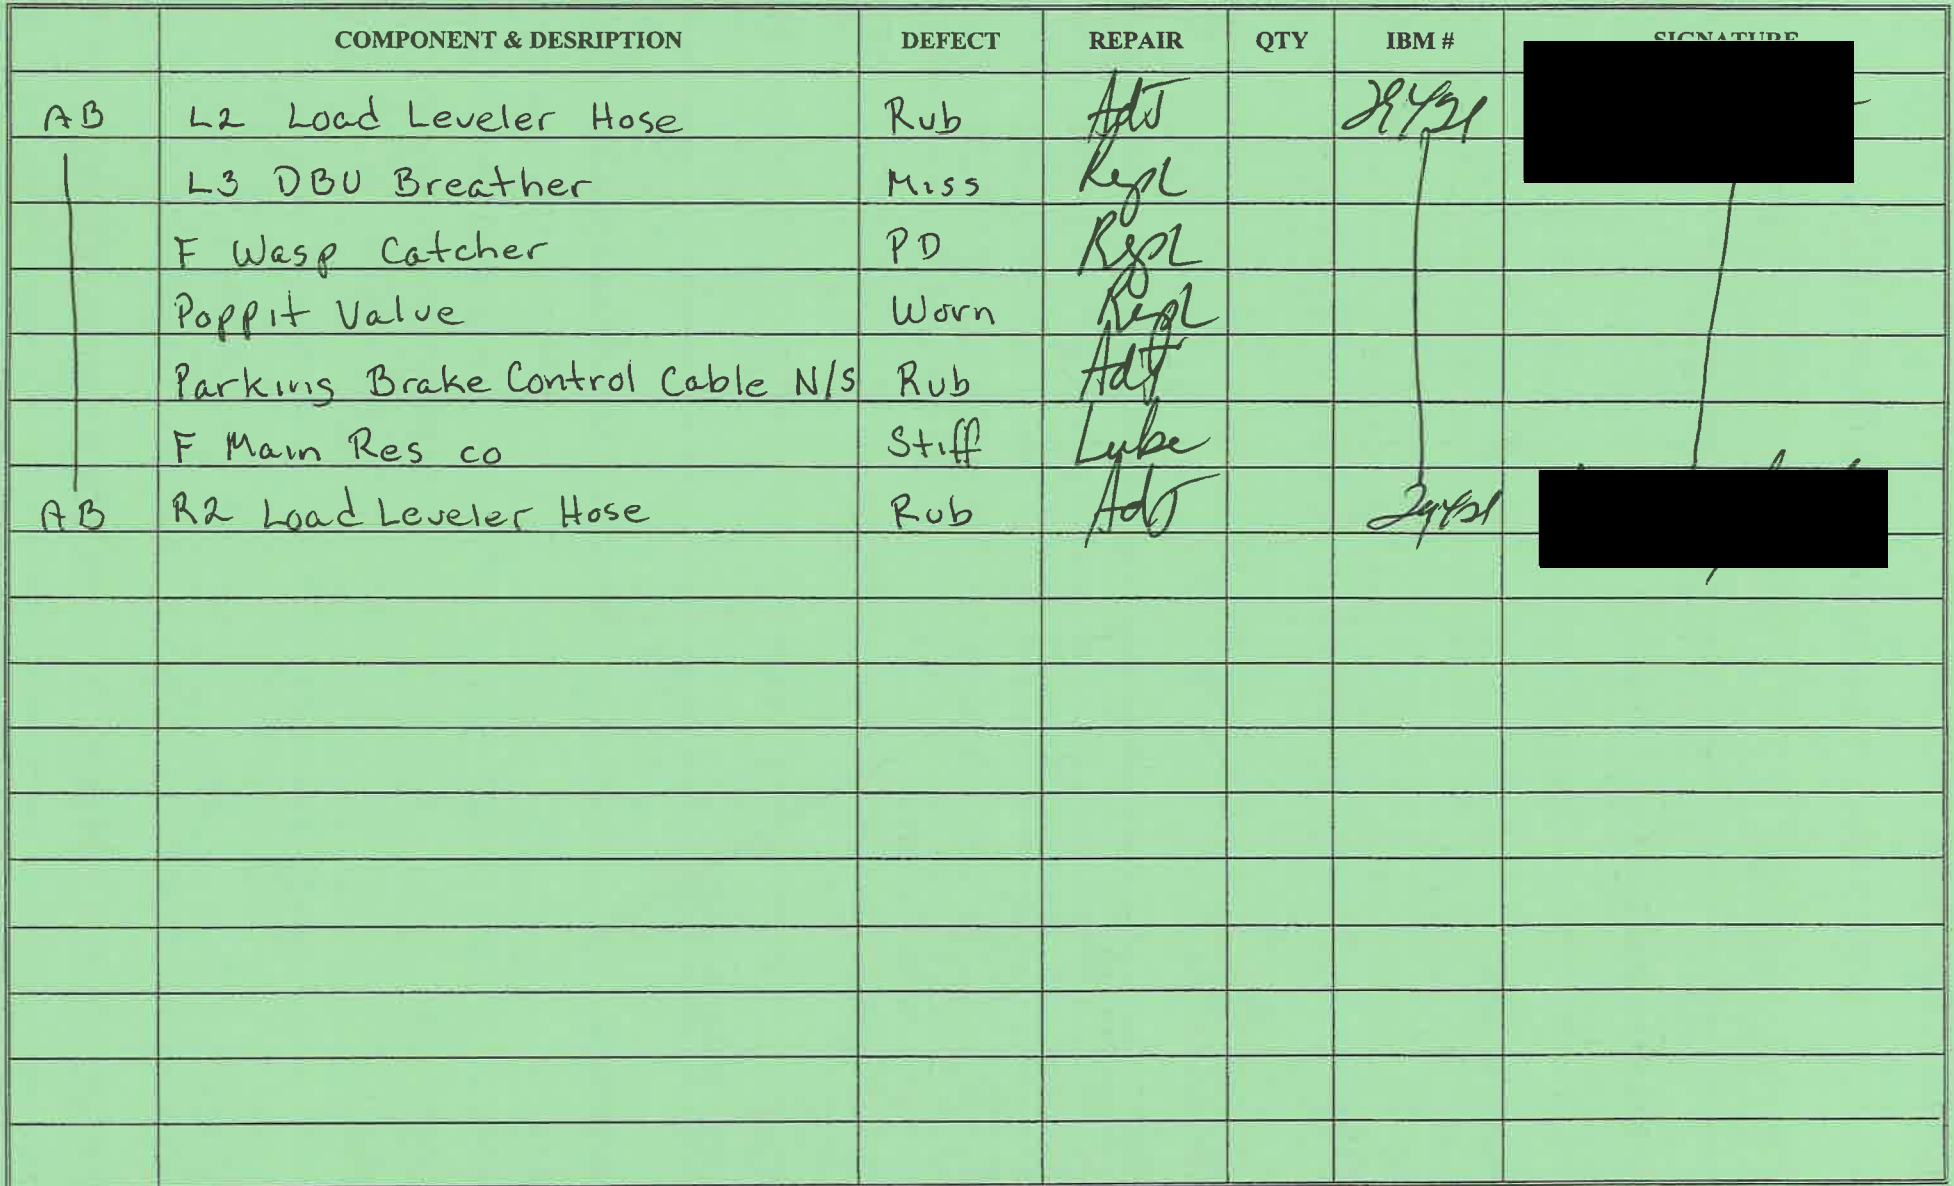 COMPONENT & DESRIPTION DEFECT REPAIR QTY IBM # SIGNATURE
AB L2 Load Leveler Hose Rub AdJ
L3 DBU Breather Miss Repl
F Wasp Catcher PD Repl
Poppit Value Worn Repl
Parking Brake Control Cable N/S Rub AdJ
F Main Res co Stiff Lube
AB R2 Load Leveler Hose Rub AdJ